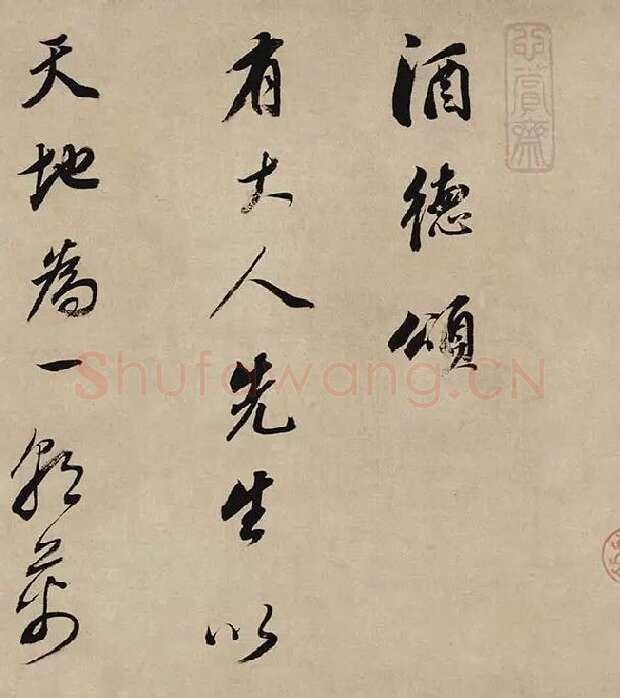 酒德頌
有大人先生以
天地為一朝萬
玄賞齋
Shufawang.CN